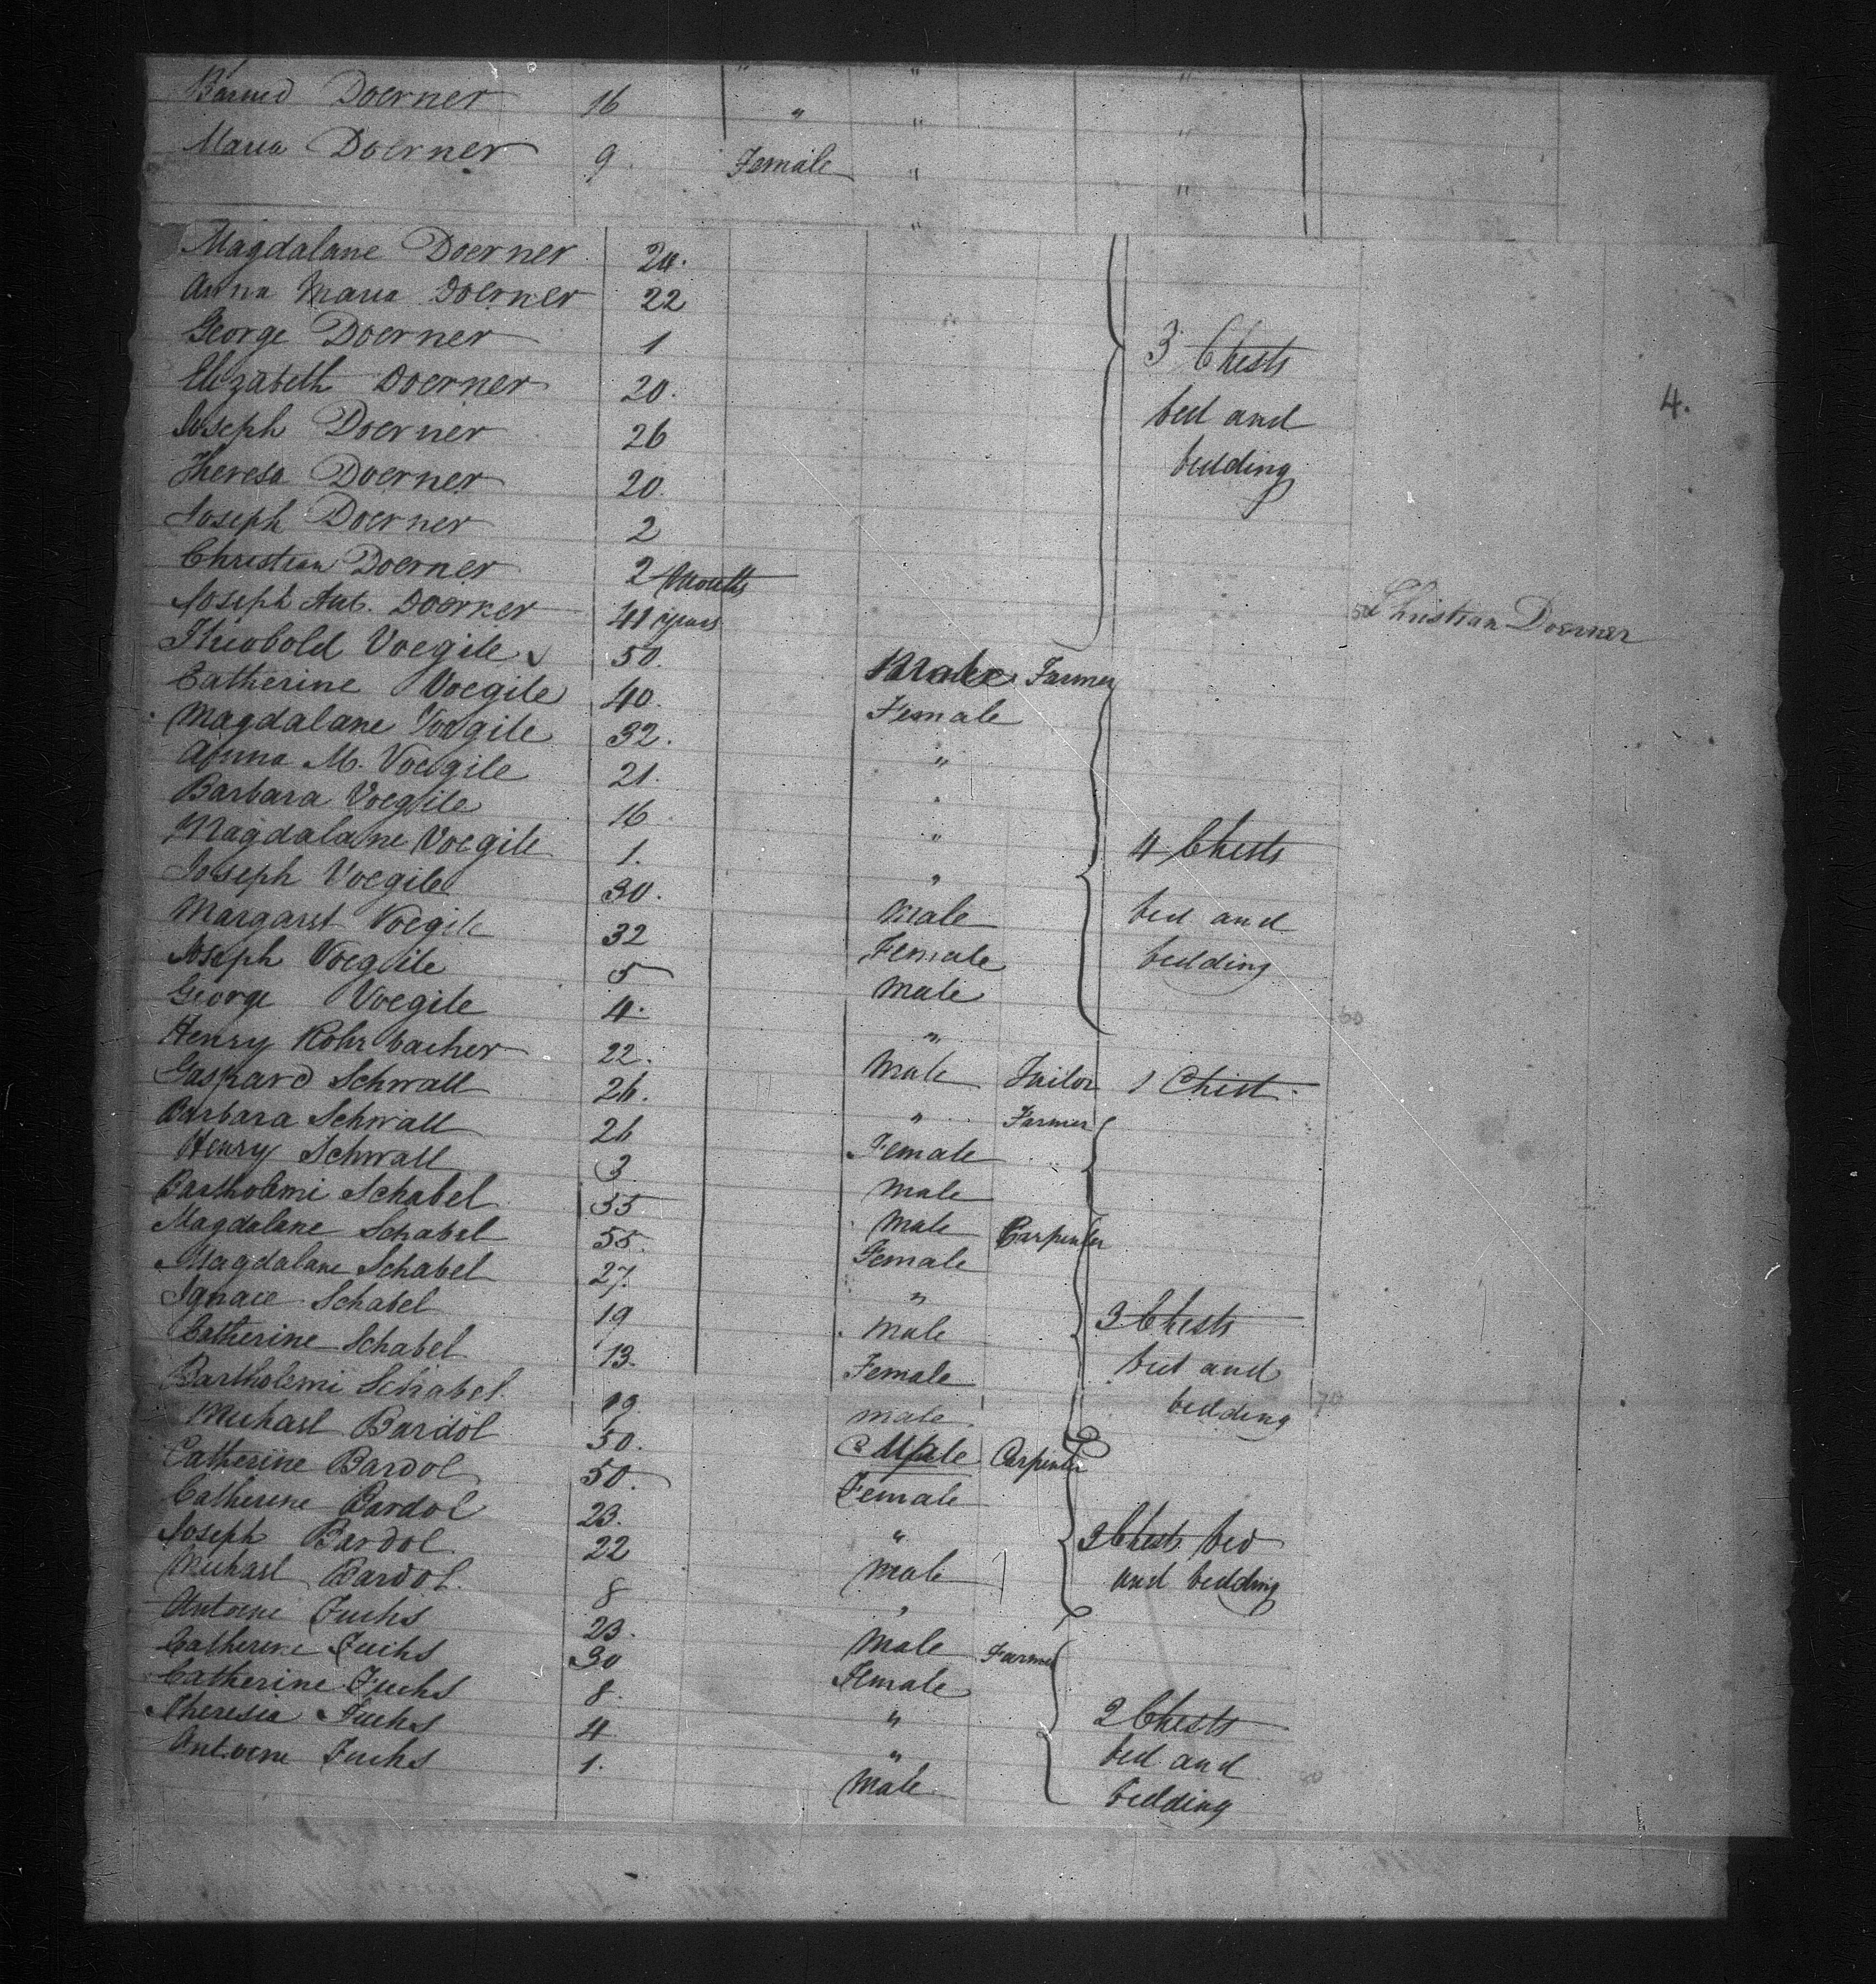 Barned Doerner 16 " " "
Maria Doerner 9 Female " "
Magdalane Doerner 24.
Anna Maria Doerner 22
George Doerner 1
3 Chests
Elizabeth Doerner 20.
4.
bed and
Joseph Doerner 26
bedding
Theresa Doerner 20
Joseph Doerner 2
Christian Doerner 2 Months
Christian Doerner
Joseph Ant. Doerner 41 years
Theobold Voegile 50. Male Farmer
Catherine Voegile 40. Female
Magdalane Voegile 32. "
Anna M. Voegile 21. "
Barbara Voegile 16 "
Magdalane Voegile 1. " 4 Chests
Joseph Voegile 30. Male bed and
Margaret Voegile 32 Female bedding
Joseph Voegile 5 Male
George Voegile 4. " 60
Henry Rohrbacher 22. Male Tailor 1 Chest.
Gaspard Schwall 26. " Farmer
Barbara Schwall 26 Female
Henry Schwall 3 Male
Bartholemi Schabel 55 Male Carpenter
Magdalane Schabel 55. Female
Magdalane Schabel 27. "
Ignace Schabel 19 Male 3 Chests
Catherine Schabel 13. Female bed and
Bartholemi Schabel 19. male bedding 70
Michael Bardol 50. Male Carpenter
Catherine Bardol 50. Female
Catherine Bardol 23. " 3 Chests bed
Joseph Bardol 22 Male and bedding
Michael Bardol. 8 "
Antoine Fuchs 23. Male Farmer
Catherine Fuchs 30 Female
Catherine Fuchs 8. " 2 Chests
Theresia Fuchs 4 " bed and
Antoine Fuchs 1. Male bedding 80